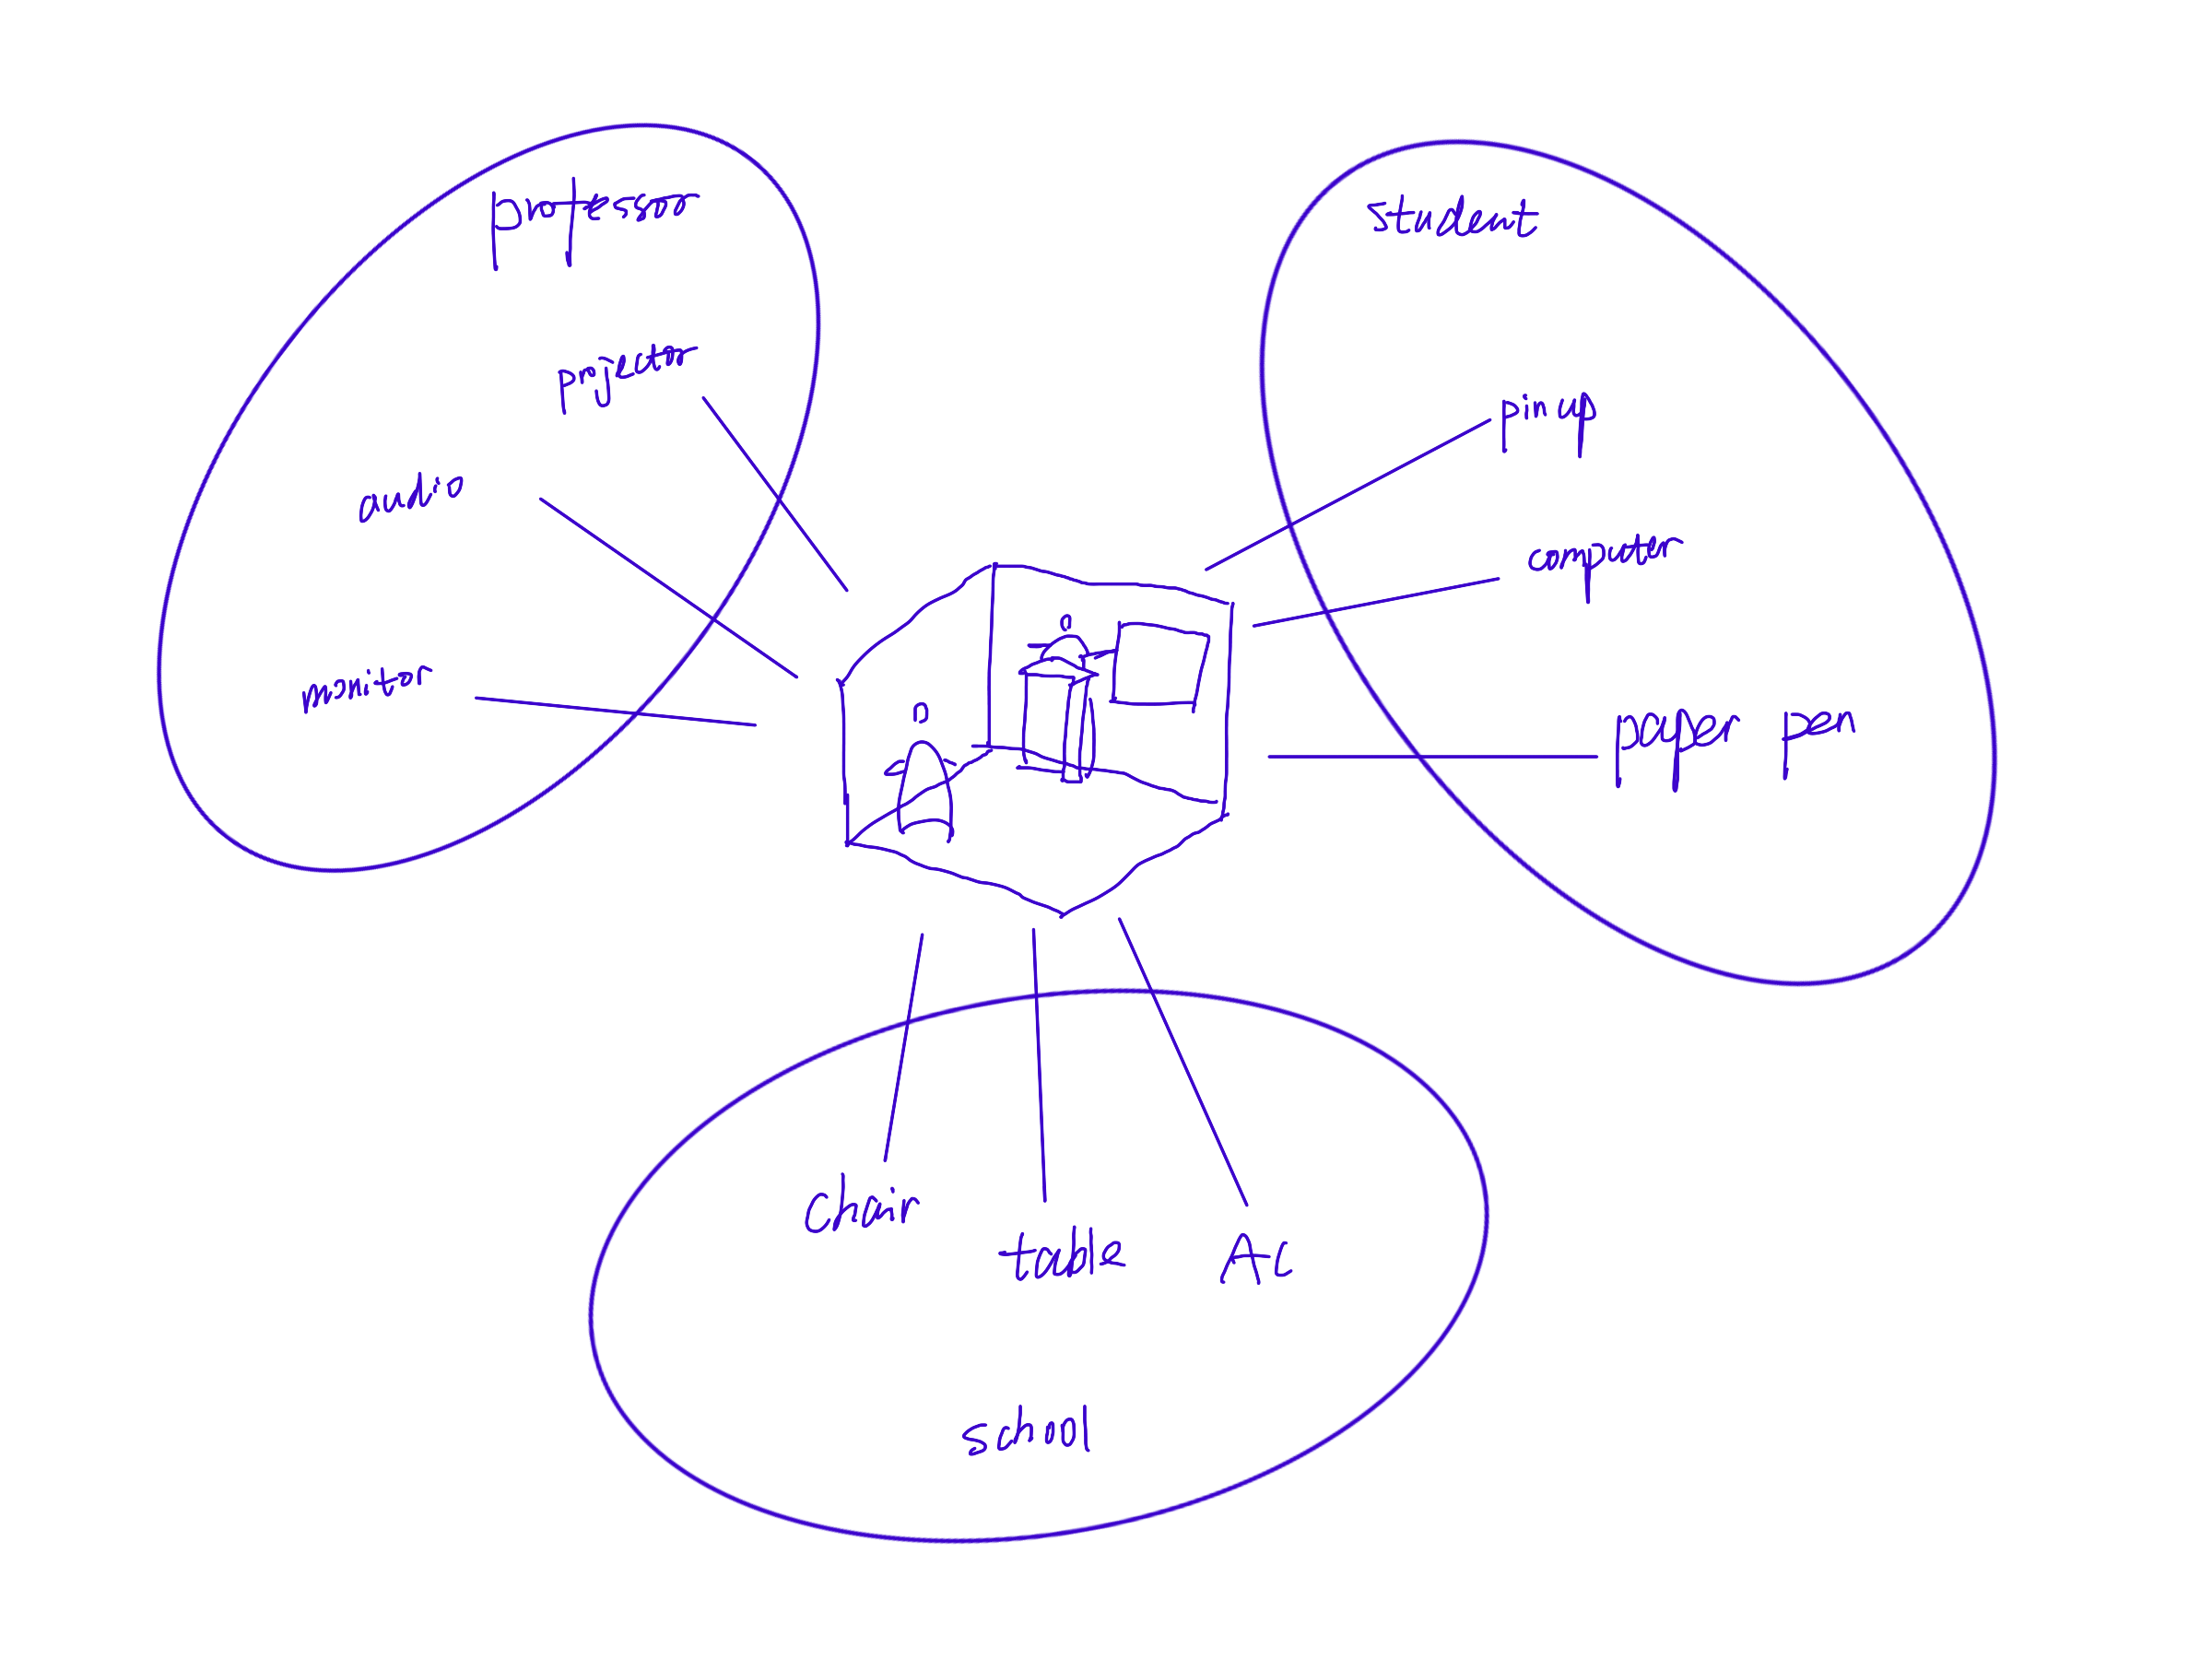 professor
projector
audio
monitor
student
pin up
computer
paper pen
chair
table
AC
school